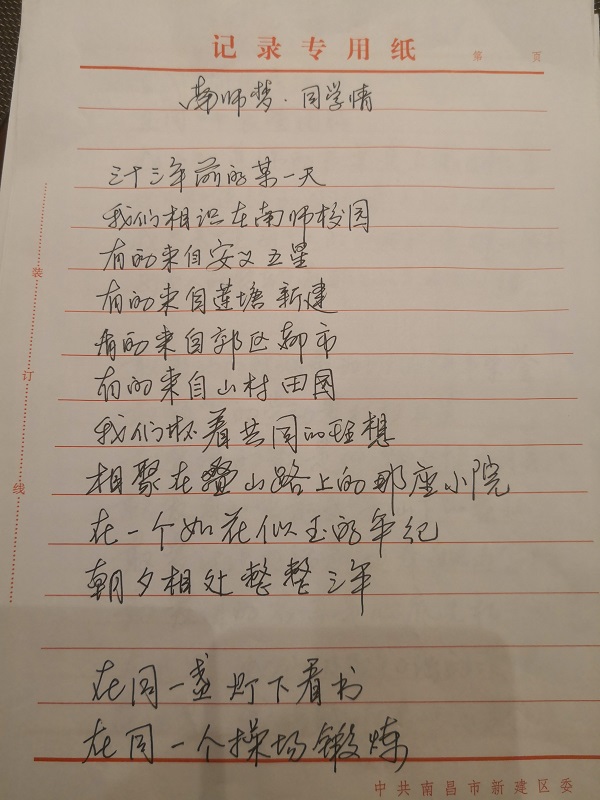 记录专用纸
第 页
南师梦·同学情
三十三年前的某一天
我们相识在南师校园
有的来自安义五星
有的来自莲塘新建
有的来自郊区都市
有的来自山村田园
我们怀着共同的理想
相聚在叠山路上的那座小院
在一个如花似玉的年纪
朝夕相处整整三年
在同一盏灯下看书
在同一个操场锻炼
装
订
线
中共南昌市新建区委